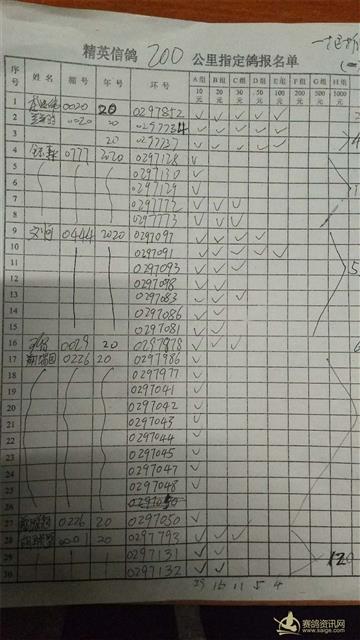 精英信鸽 200 公里指定鸽报名单
序号 姓名 棚号 年号 环号 A组10元 B组20元 C组30元 D组50元 E组100元 F组200元 G组500元 H组1000元
1 0020 20 0297852 ✓ ✓ ✓ ✓ ✓
2 0020 20 0297734 ✓ ✓ ✓ ✓ ✓
3 20 0297727 ✓ ✓ ✓ ✓ ✓
4 0777 2020 0297128 ✓
5 0297130 ✓
6 0297129 ✓
7 0297772 ✓ ✓ ✓
8 0297773 ✓ ✓ ✓
9 文问 0444 2020 0297097 ✓ ✓ ✓ ✓
10 0297091 ✓ ✓ ✓ ✓ ✓
11 0297093 ✓ ✓ ✓
12 0297098 ✓ ✓
13 0297083 ✓ ✓ ✓
14 0297086 ✓ ✓
15 0297081 ✓ ✓
16 0029 20 0297878 ✓ ✓ ✓ ✓ ✓
17 0226 20 0297986 ✓
18 0297977 ✓
19 0297041 ✓
20 0297042 ✓
21 0297043 ✓
22 0297044 ✓
23 0297045 ✓
24 0297047 ✓
25 0297048 ✓
26
27 0226 20 0297050 ✓
28 0001 20 0297793 ✓ ✓ ✓
29 0297131 ✓ ✓ 12
30 0297132 ✓ ✓
29 16 11 5 4
赛鸽资讯网
www.saige.com